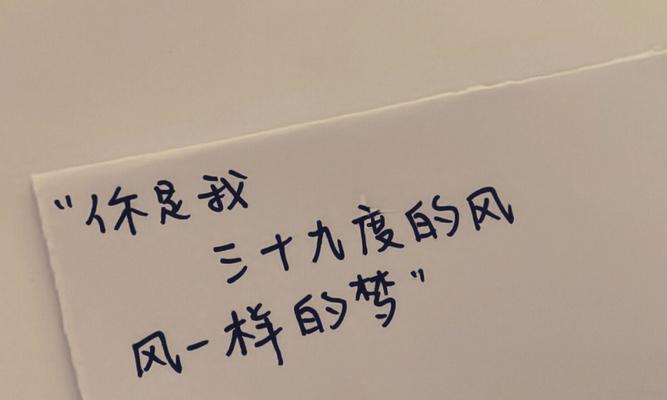 “你是我
三十九度的风
风一样的梦”